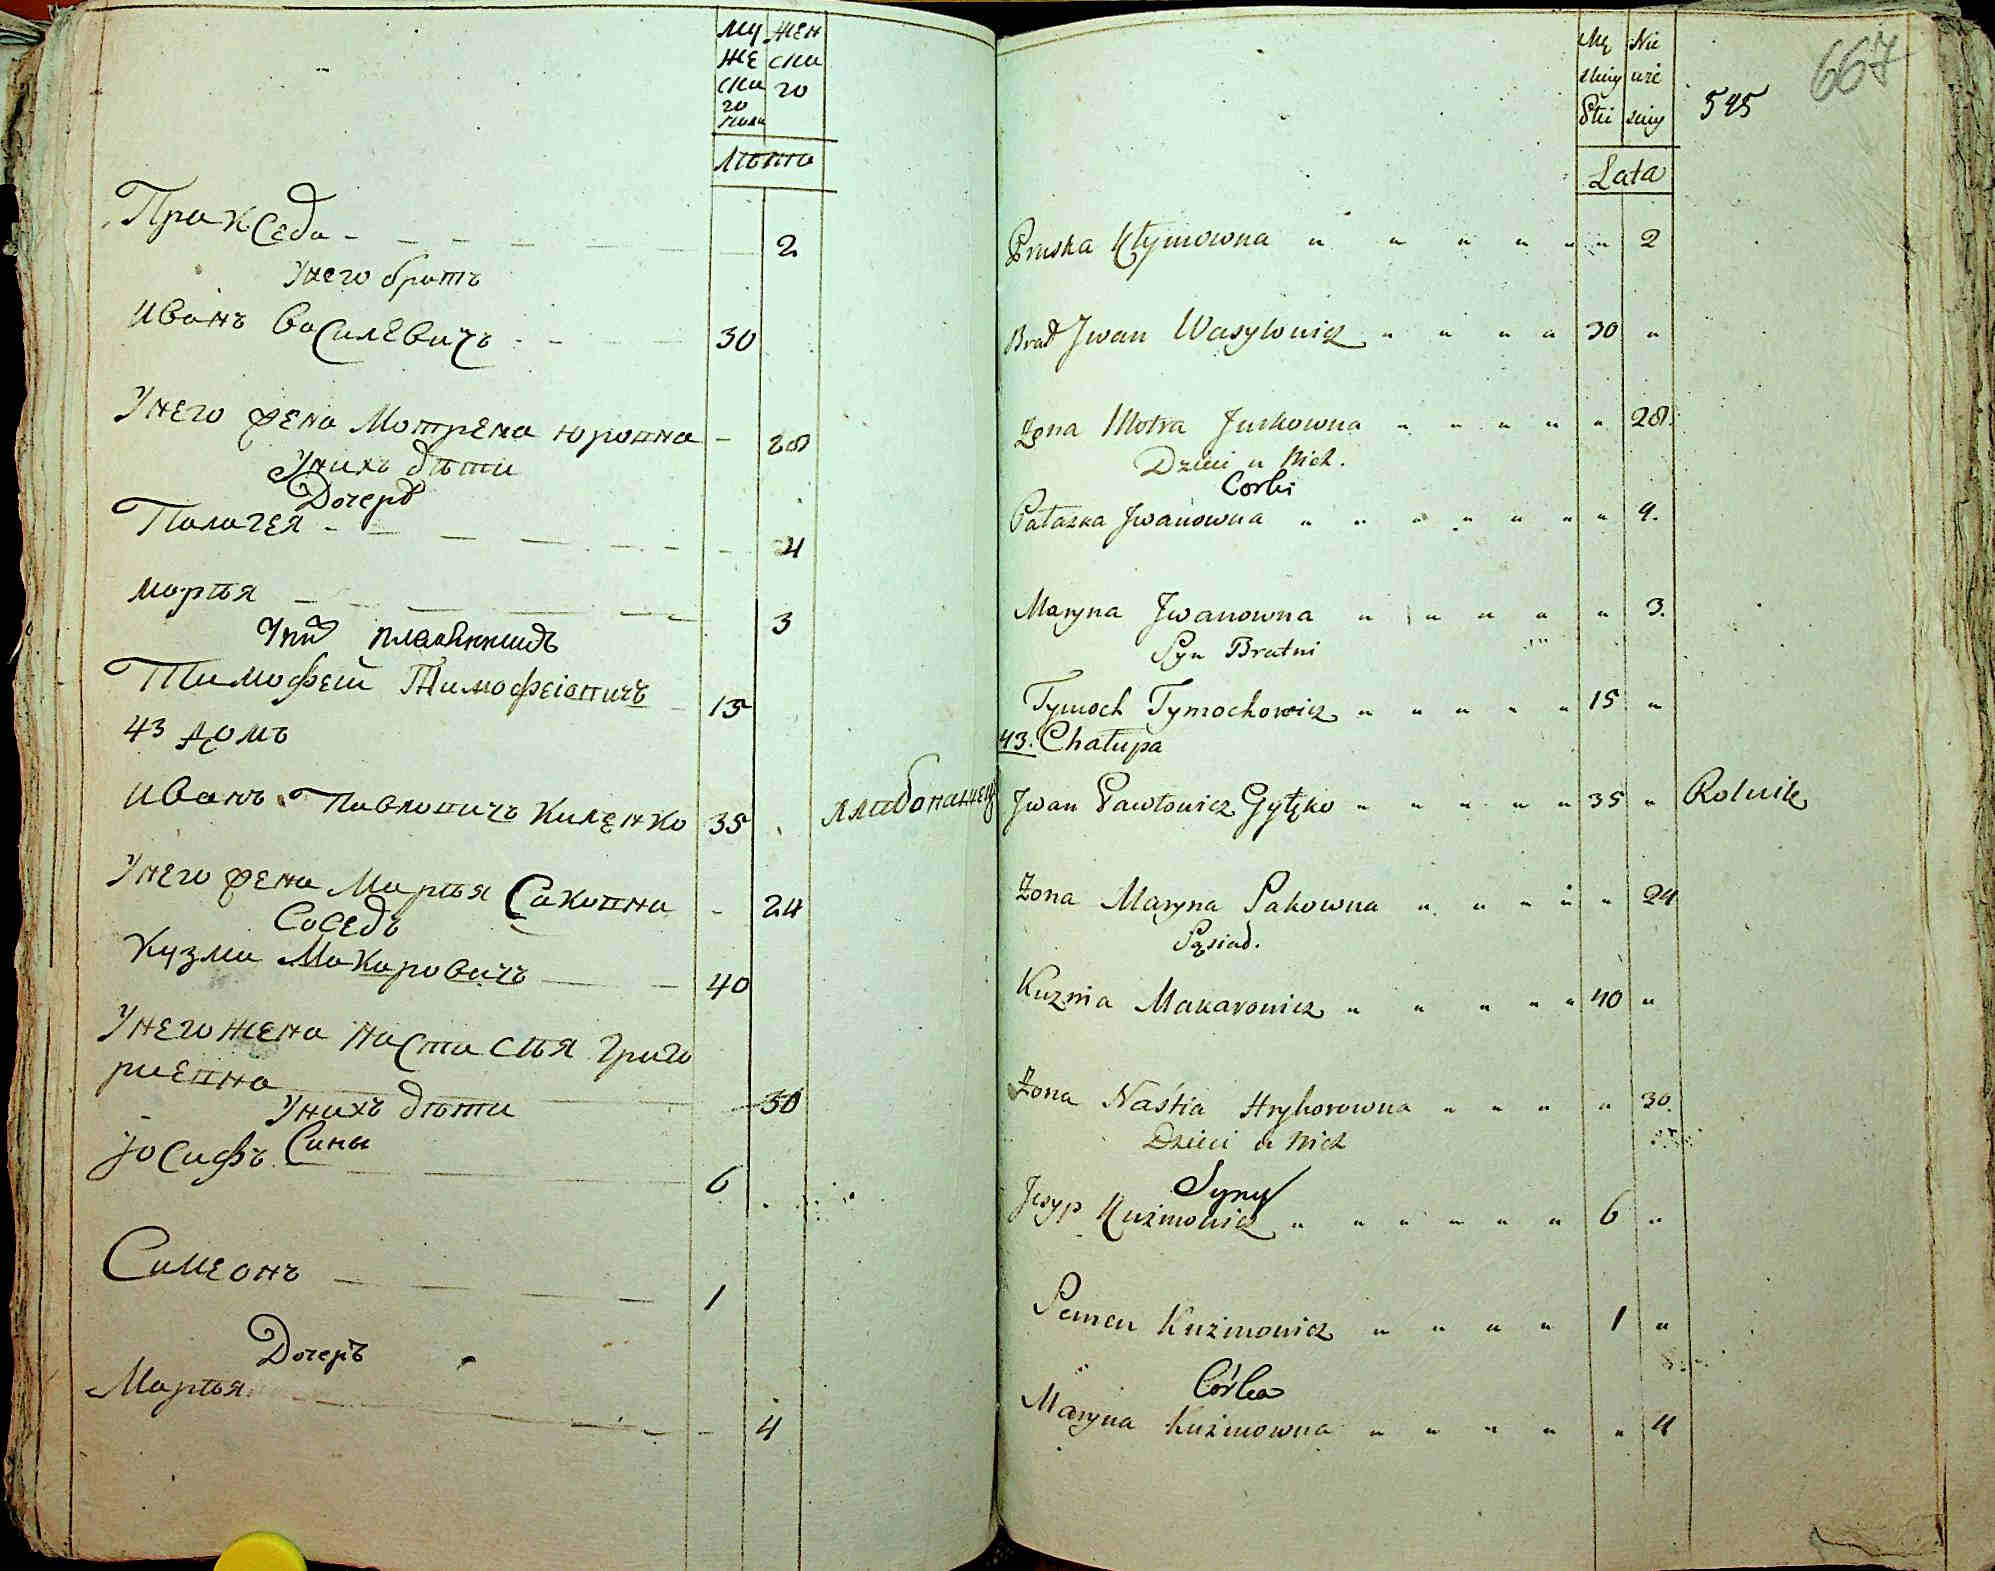 му жен
же ска
ска го
го
пола
лѣта
Пракседа 2
Унего братъ
Иванъ Василевичъ 30
Унего жена Мотрена Юровна 28
Унихъ дѣти
Дочерѣ
Палагея 4
Марья 3
племянникъ
Тимофей Тимофеіовичъ 15
43 домъ
Иванъ Павловичъ Киленко 35
Унего жена Марья Саковна 24
Соседъ
Кузма Макаровичъ 40
Унего жена Настасья Григо
риевна 30
Унихъ дѣти
Сины
Іосифъ 6
Симеонъ 1
Дочеръ
Марья 4
Mę Nie
skiey wie
Płci skiey
Lata
545
667
Pruska Kłymowna " " " " " " 2
Brat Jwan Wasylowicz " " " " 30 "
Żona Motra Jurkowna " " " " " 28.
Dzieci u Nich.
Corki
Pałazka Jwanowna " " " " " " " 4.
Maryna Jwanowna " " " " " 3.
Syn Bratni
Tymoch Tymochowicz " " " " " 15 "
43. Chałupa
Jwan Pawłowicz Gyłęko " " " " " 35 " Rolnik
Żona Maryna Sakowna " " " " " 24
Sąsiad.
Kuzma Makarowicz " " " " " 40 "
Żona Naśtia Hryhorowna " " " " 30.
Dzieci u Nich
Syny
Jusyp Kuźmowicz " " " " " " 6 "
Semen Kuźmowicz " " " " 1 "
Córka
Maryna Kuźmowna " " " " " 4